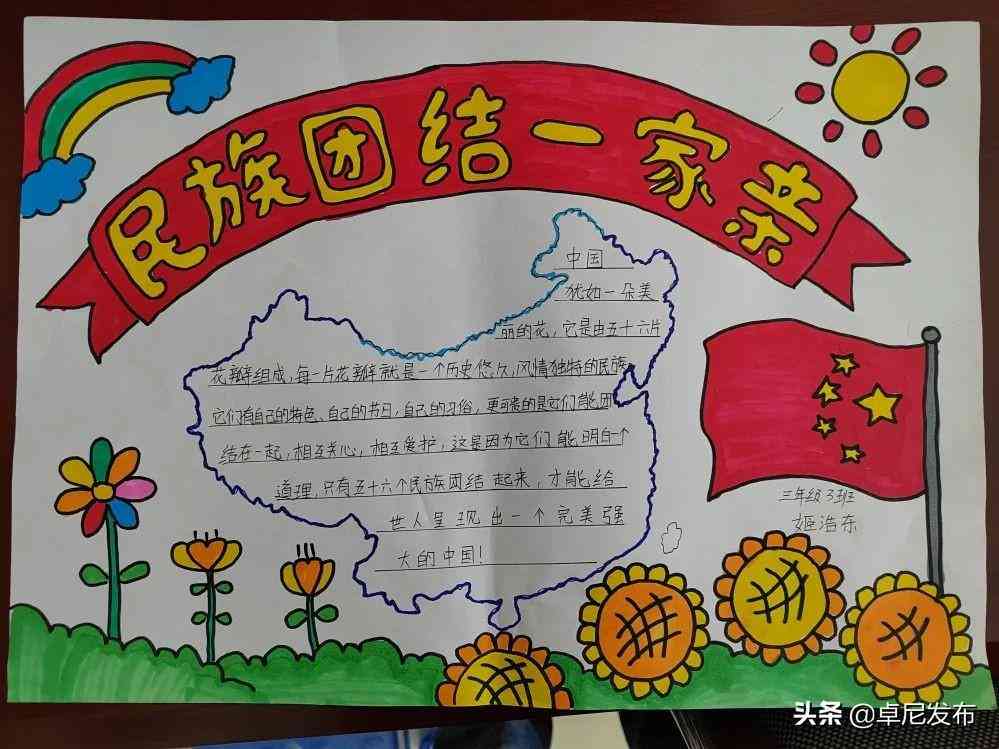 民族团结一家亲
中国
犹如一朵美
丽的花，它是由五十六片
花瓣组成，每一片花瓣就是一个历史悠久，风情独特的民族
它们有自己的特色、自己的节日，自己的习俗，更可贵的是它们能团
结在一起，相互关心，相互爱护，这是因为它们能明白一个
道理，只有五十六个民族团结起来，才能给
世人呈现出一个完美强
大的中国！
三年级3班
姬浩东
头条 @卓尼发布